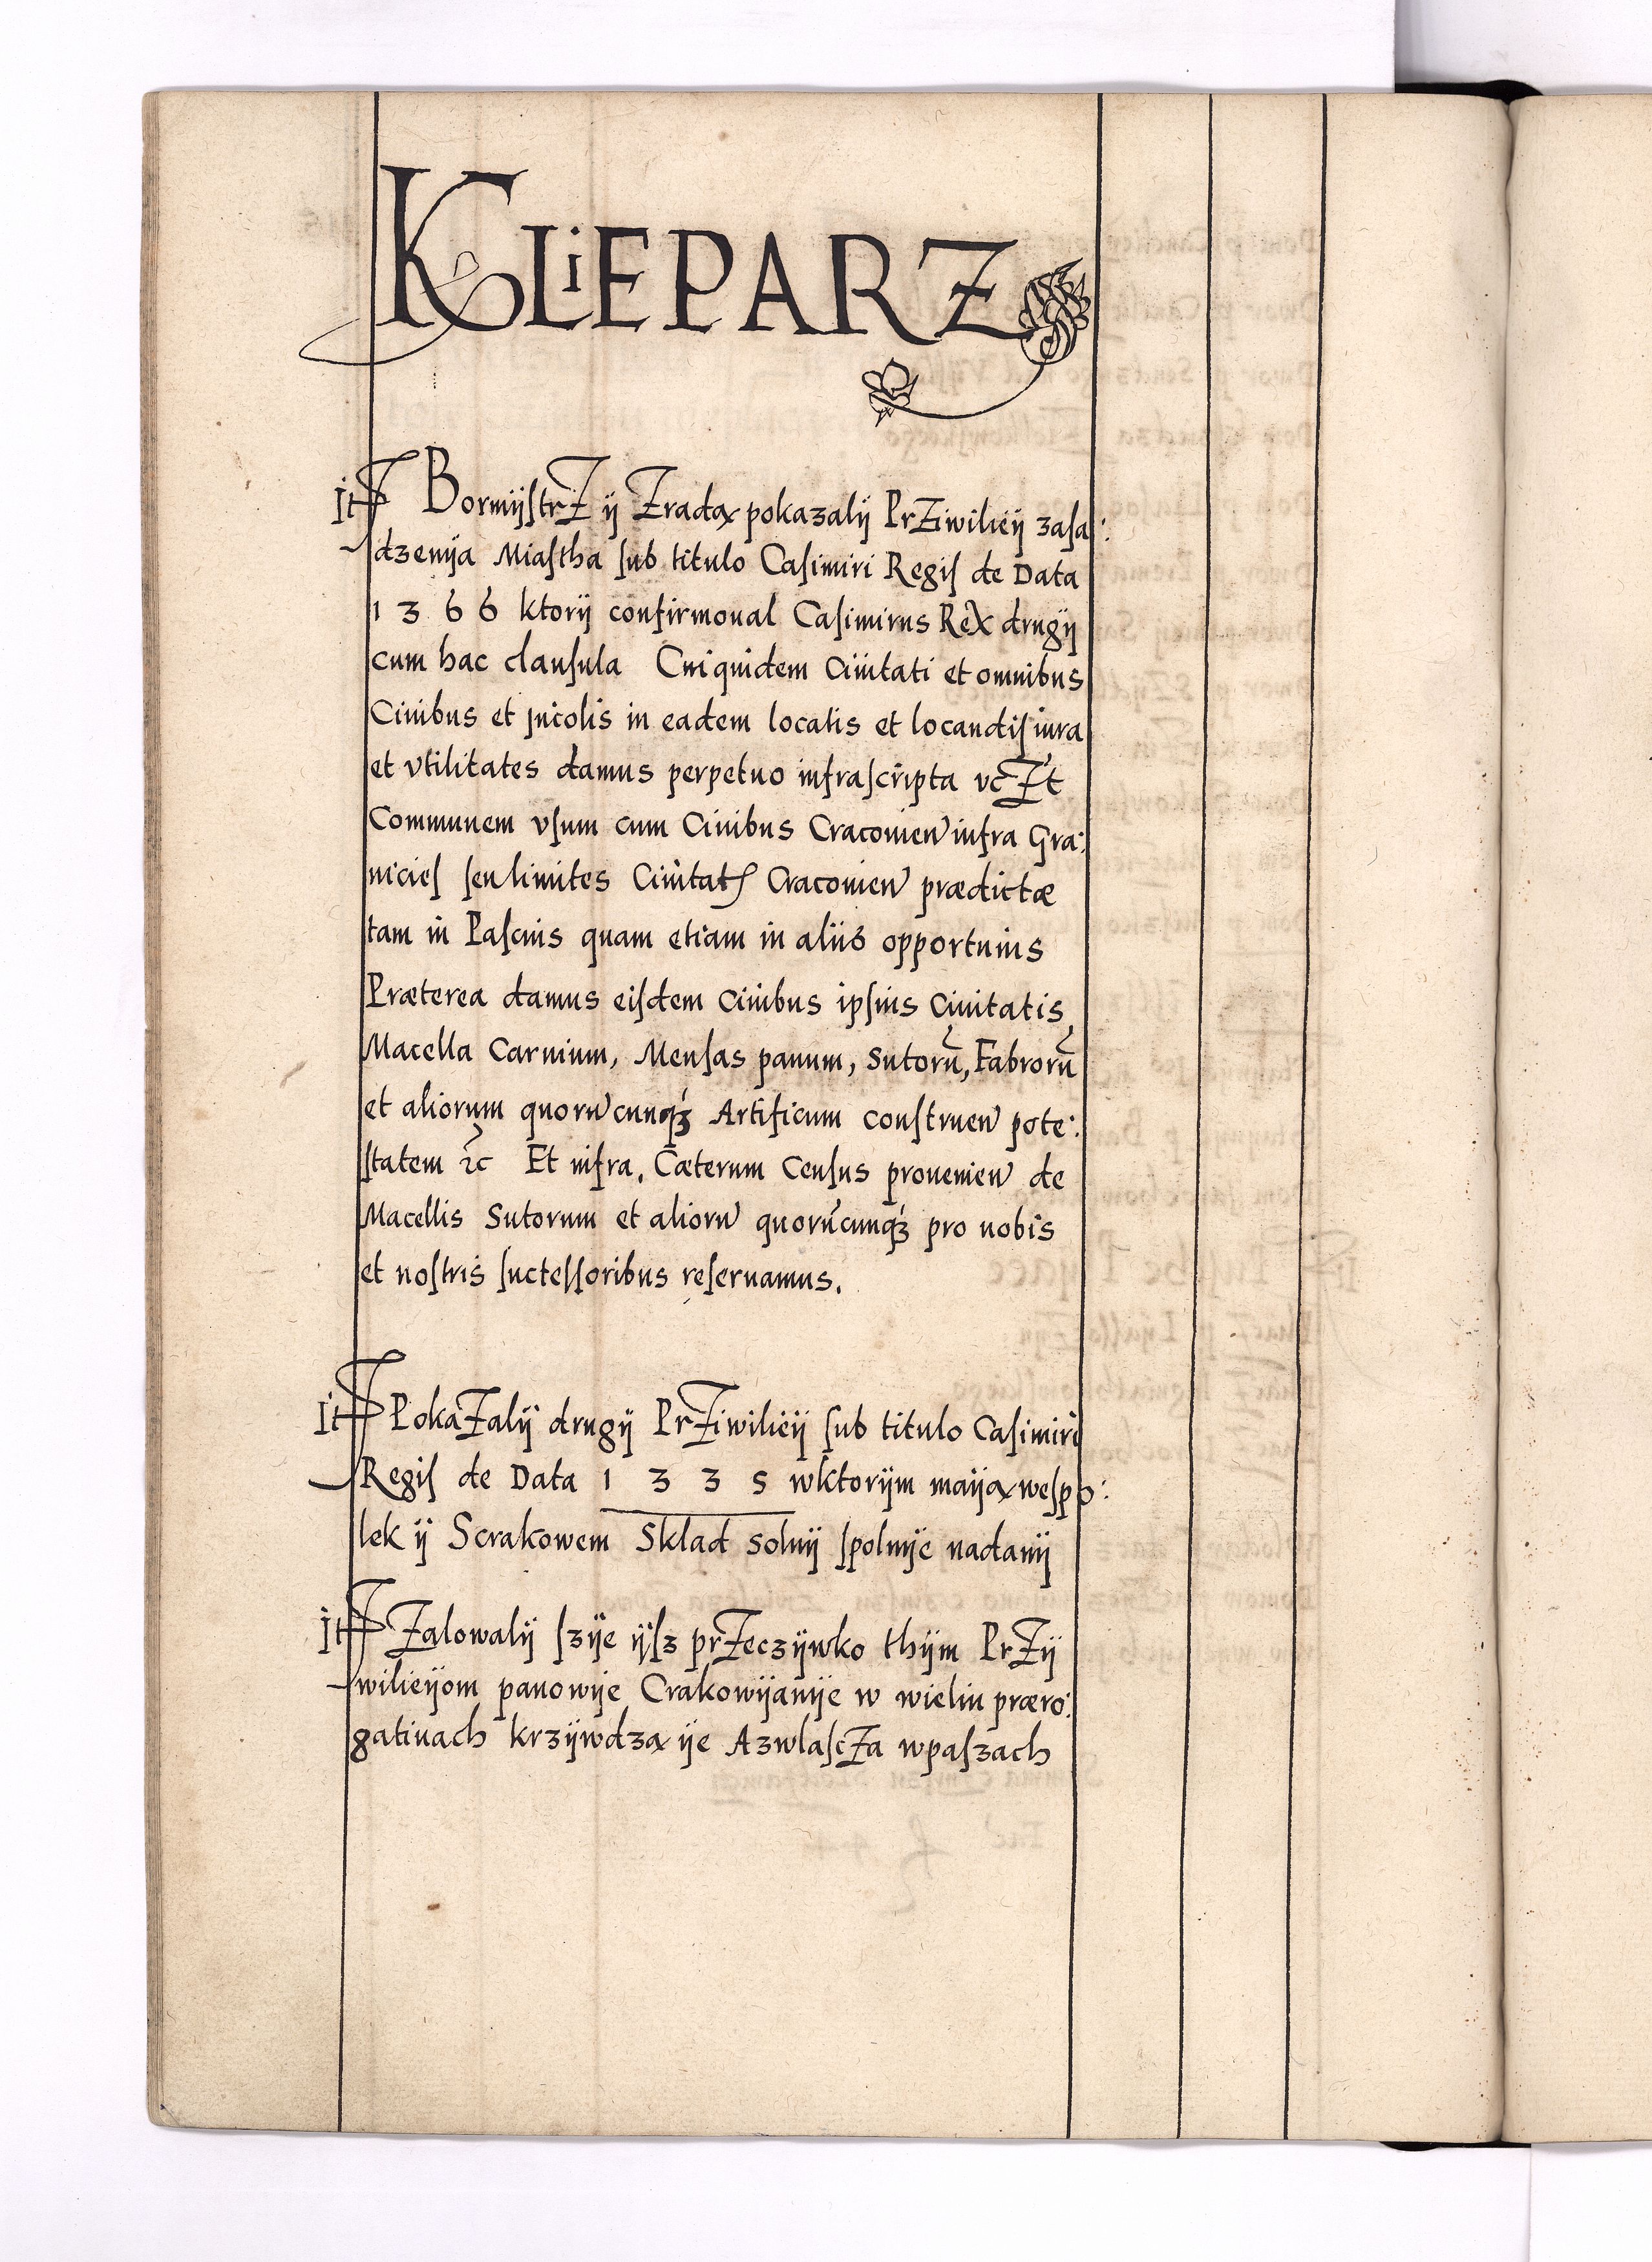 KLiEPARZ
It Bormijstrz ij Zradą pokazalij Przÿwilieÿ zasa:
dzenija Miastha sub titulo Casimiri Regis de Data
1 3 6 6 ktorij confirmoual Casimirus Rex drugij
cum hac clausula Cuiquidem Ciuitati et omnibus
Ciuibus et jncolis in eadem locatis et locandis iura
et vtilitates damus perpetuo infrascripta vcZt
Communem vsum cum Ciuibus Cracouien infra Gra:
nicies seu limites Ciuitatis Cracouien prædictæ
tam in Pascuis quam etiam in aliis opportunis
Præterea damus eisdem Ciuibus ipsius Ciuitatis
Macella Carnium, Mensas panum, Sutorũ, Fabrorũ
et aliorum quorũcunqꝫ Artificum construen pote:
statem ꝛc Et infra. Cæterum Census prouenien de
Macellis Sutorum et aliorũ quorũcunqꝫ pro nobis
et nostris successoribus reseruamus.
It Pokazalij drugij Prziwilieij sub titulo Casimiri
Regis de Data 1 3 3 5 wktorijm maiją wespo:
lek ij Scrakowem Sklad Solnij spolnije nadanij
It Zalowalij szije ijsz przeczijwko thijm Przij
wilieijom panowije Crakowijanije w wieliu præro:
gatiuach krzijwdzą ije Azwlascza wpaszach